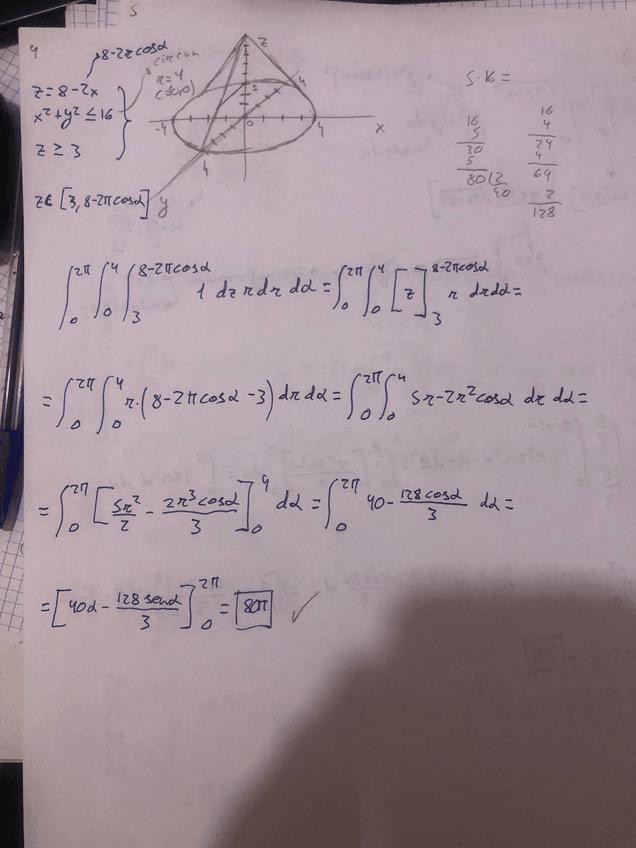 5
4
8-2rcosα
z=8-2x
x²+y²≤16
z≥3
circun
r=4
c=(0,0)
z∈[3,8-2rcosα]
z
4
3
-4
0
4
x
4
y
5·16=
16
5
30
5
80 12
40
16
4
24
4
64
2
128
∫₀^2π ∫₀^4 ∫₃^8-2rcosα 1 dz r dr dα = ∫₀^2π ∫₀^4 [z]₃^8-2rcosα r dr dα =
= ∫₀^2π ∫₀^4 r·(8-2rcosα-3) dr dα = ∫₀^2π ∫₀^4 5r-2r²cosα dr dα =
= ∫₀^2π [5r²/2 - 2r³cosα/3]₀^4 dα = ∫₀^2π 40 - 128cosα/3 dα =
= [40α - 128senα/3]₀^2π = 80π ✓